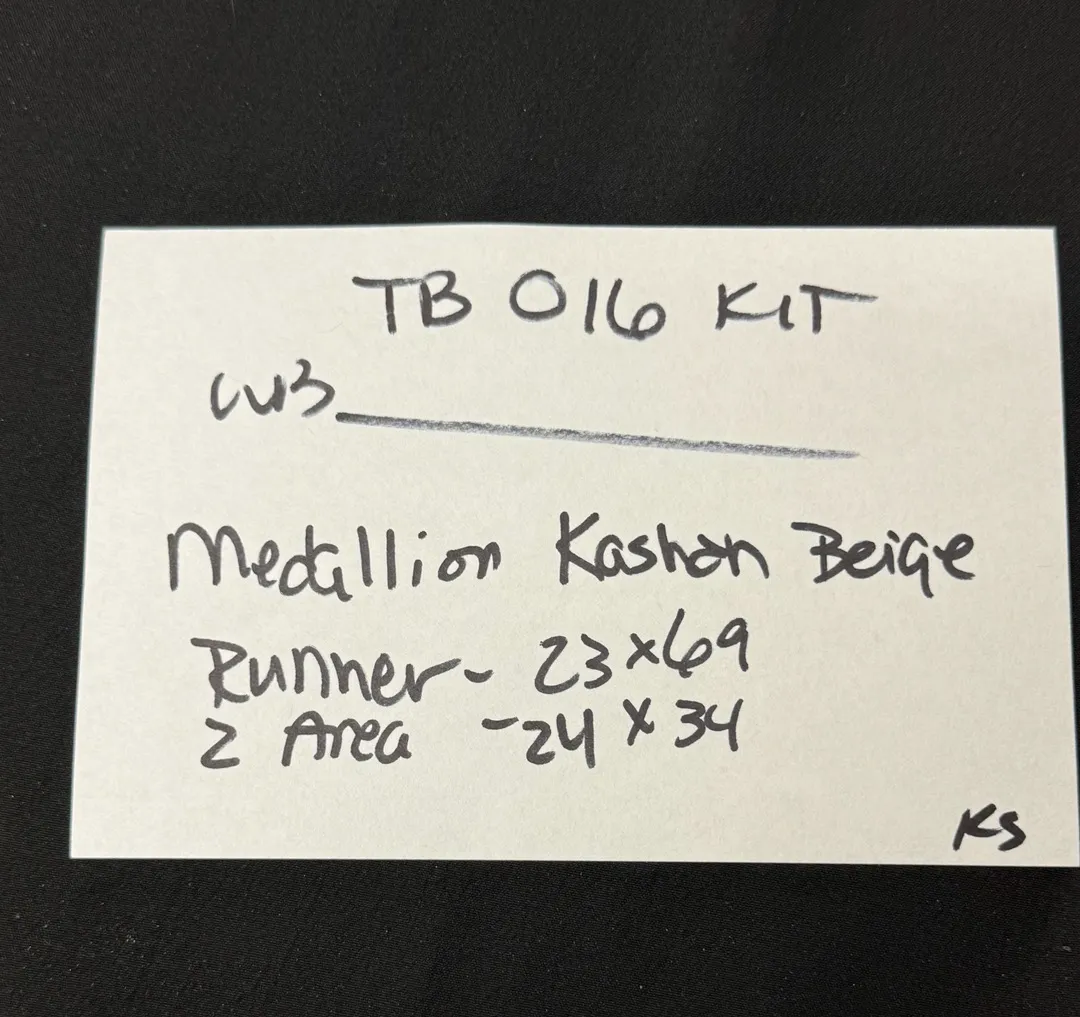 TB 016 KIT
Medallion Kashan Beige
Runner - 23x69
2 Area - 24 x 34
KS